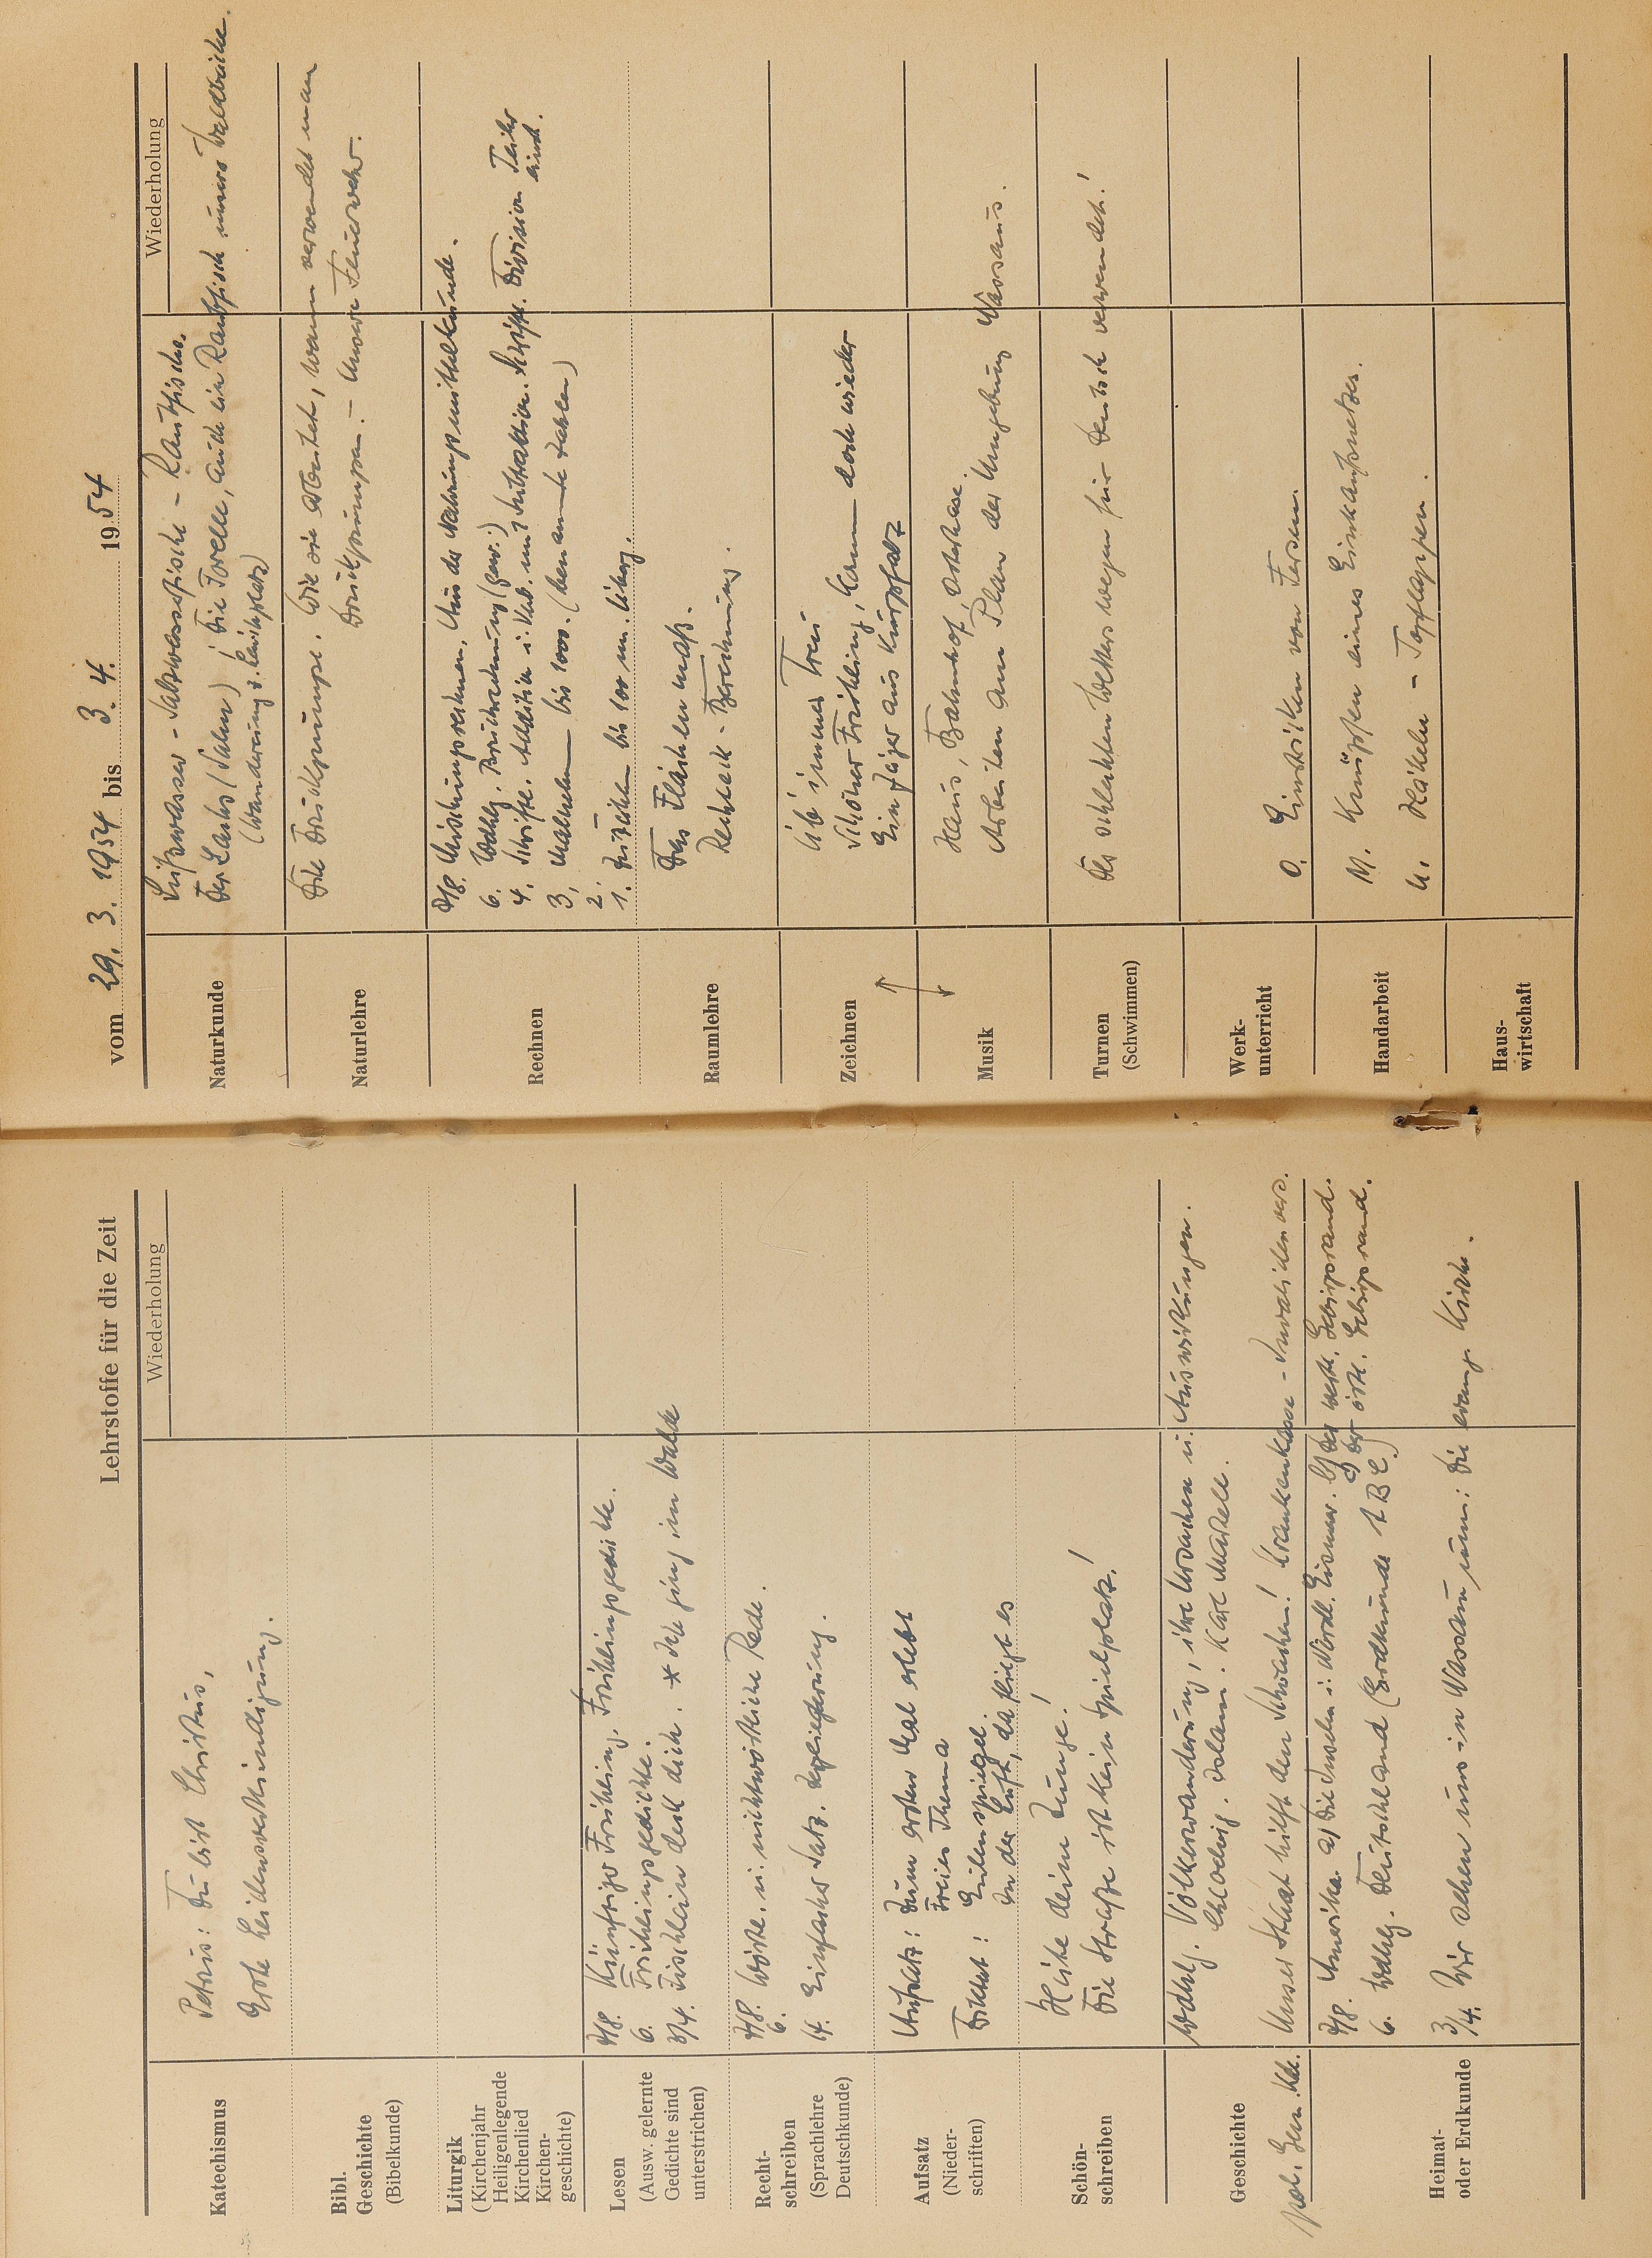 Lehrstoffe für die Zeit
Wiederholung
Katechismus
Petrus: Du bist Christus,
Erste Leidensverkündigung.
Bibl.
Geschichte
(Bibelkunde)
Liturgik
(Kirchenjahr
Heiligenlegende
Kirchenlied
Kirchen-
geschichte)
Lesen
(Ausw. gelernte
Gedichte sind
unterstrichen)
7/8. Künftiger Frühling, Frühlingsgedichte.
6. Frühlingsgedichte.
3/4. Tischlein deck dich. * Ich ging im Walde
Recht-
schreiben
(Sprachlehre
Deutschkunde)
7/8. Wörtl. u. nichtwörtliche Rede.
6.
4. Einfacher Satz. Zergliederung.
Aufsatz
(Nieder-
schriften)
Aufsatz: Zum ersten Mal erlebt
Freies Thema
Diktat: Eulenspiegel.
In der Luft, da fliegt es
Schön-
schreiben
Hüte deine Zunge!
Die Straße ist kein Spielplatz!
Geschichte
Wdhlg. Völkerwanderung, ihre Ursachen u. Auswirkungen.
Chlodwig. Islam. Karl Martell.
pol. Gem. Kde.
Unser Staat hilft den Schwachen! Krankenkasse - Invalidenvers.
Heimat-
oder Erdkunde
7/8. Amerika a) Die Inseln i. Nördl. Eismeer. b) Der westl. Gebirgsrand.
c) Der östl. Gebirgsrand.
6. Wdhlg. Deutschland (Erdkunde ABC.)
3/4. Wir sehen uns in Wassau um: Die evang. Kirche.
vom 29. 3. 1954 bis 3. 4. 1954
Wiederholung
Naturkunde
Süßwasser - Salzwasserfische - Raubfische.
Der Lachs (Salm) / Die Forelle, auch ein Raubfisch unserer Waldbäche.
(Wanderung z. Laichplatz)
Naturlehre
Die Druckpumpe. Wie sie arbeitet, wann verwendet man
Druckpumpen. - Unsere Feuerwehr.
Rechnen
7/8. Mischungsrechnen, Aus der Nahrungsmittelkunde.
6. Wdhlg. Bruchrechnung (gew.)
4. Schriftl. Addition u. Sub. und Subtraktion. Schriftl. Division Teiler einst.
3. Malnehmen bis 1000. (benannte Zahlen)
2.
1. Zuzählen bis 100 m. Überg.
Raumlehre
Das Flächenmaß.
Rechteck - Berechnung.
Zeichnen
Üb' immer Treu
Schöner Frühling, komm doch wieder
Ein Jäger aus Kurpfalz
Musik
Haus, Bahnhof, Osterhase.
Arbeiten am Plan der Umgebung Wassaus.
Turnen
(Schwimmen)
Des schlechten Wetters wegen für Deutsch verwendet!
Werk-
unterricht
O. Einstricken von Fersen.
Handarbeit
M. Knüpfen eines Einkaufsnetzes.
U. Häkeln - Topflappen.
Haus-
wirtschaft